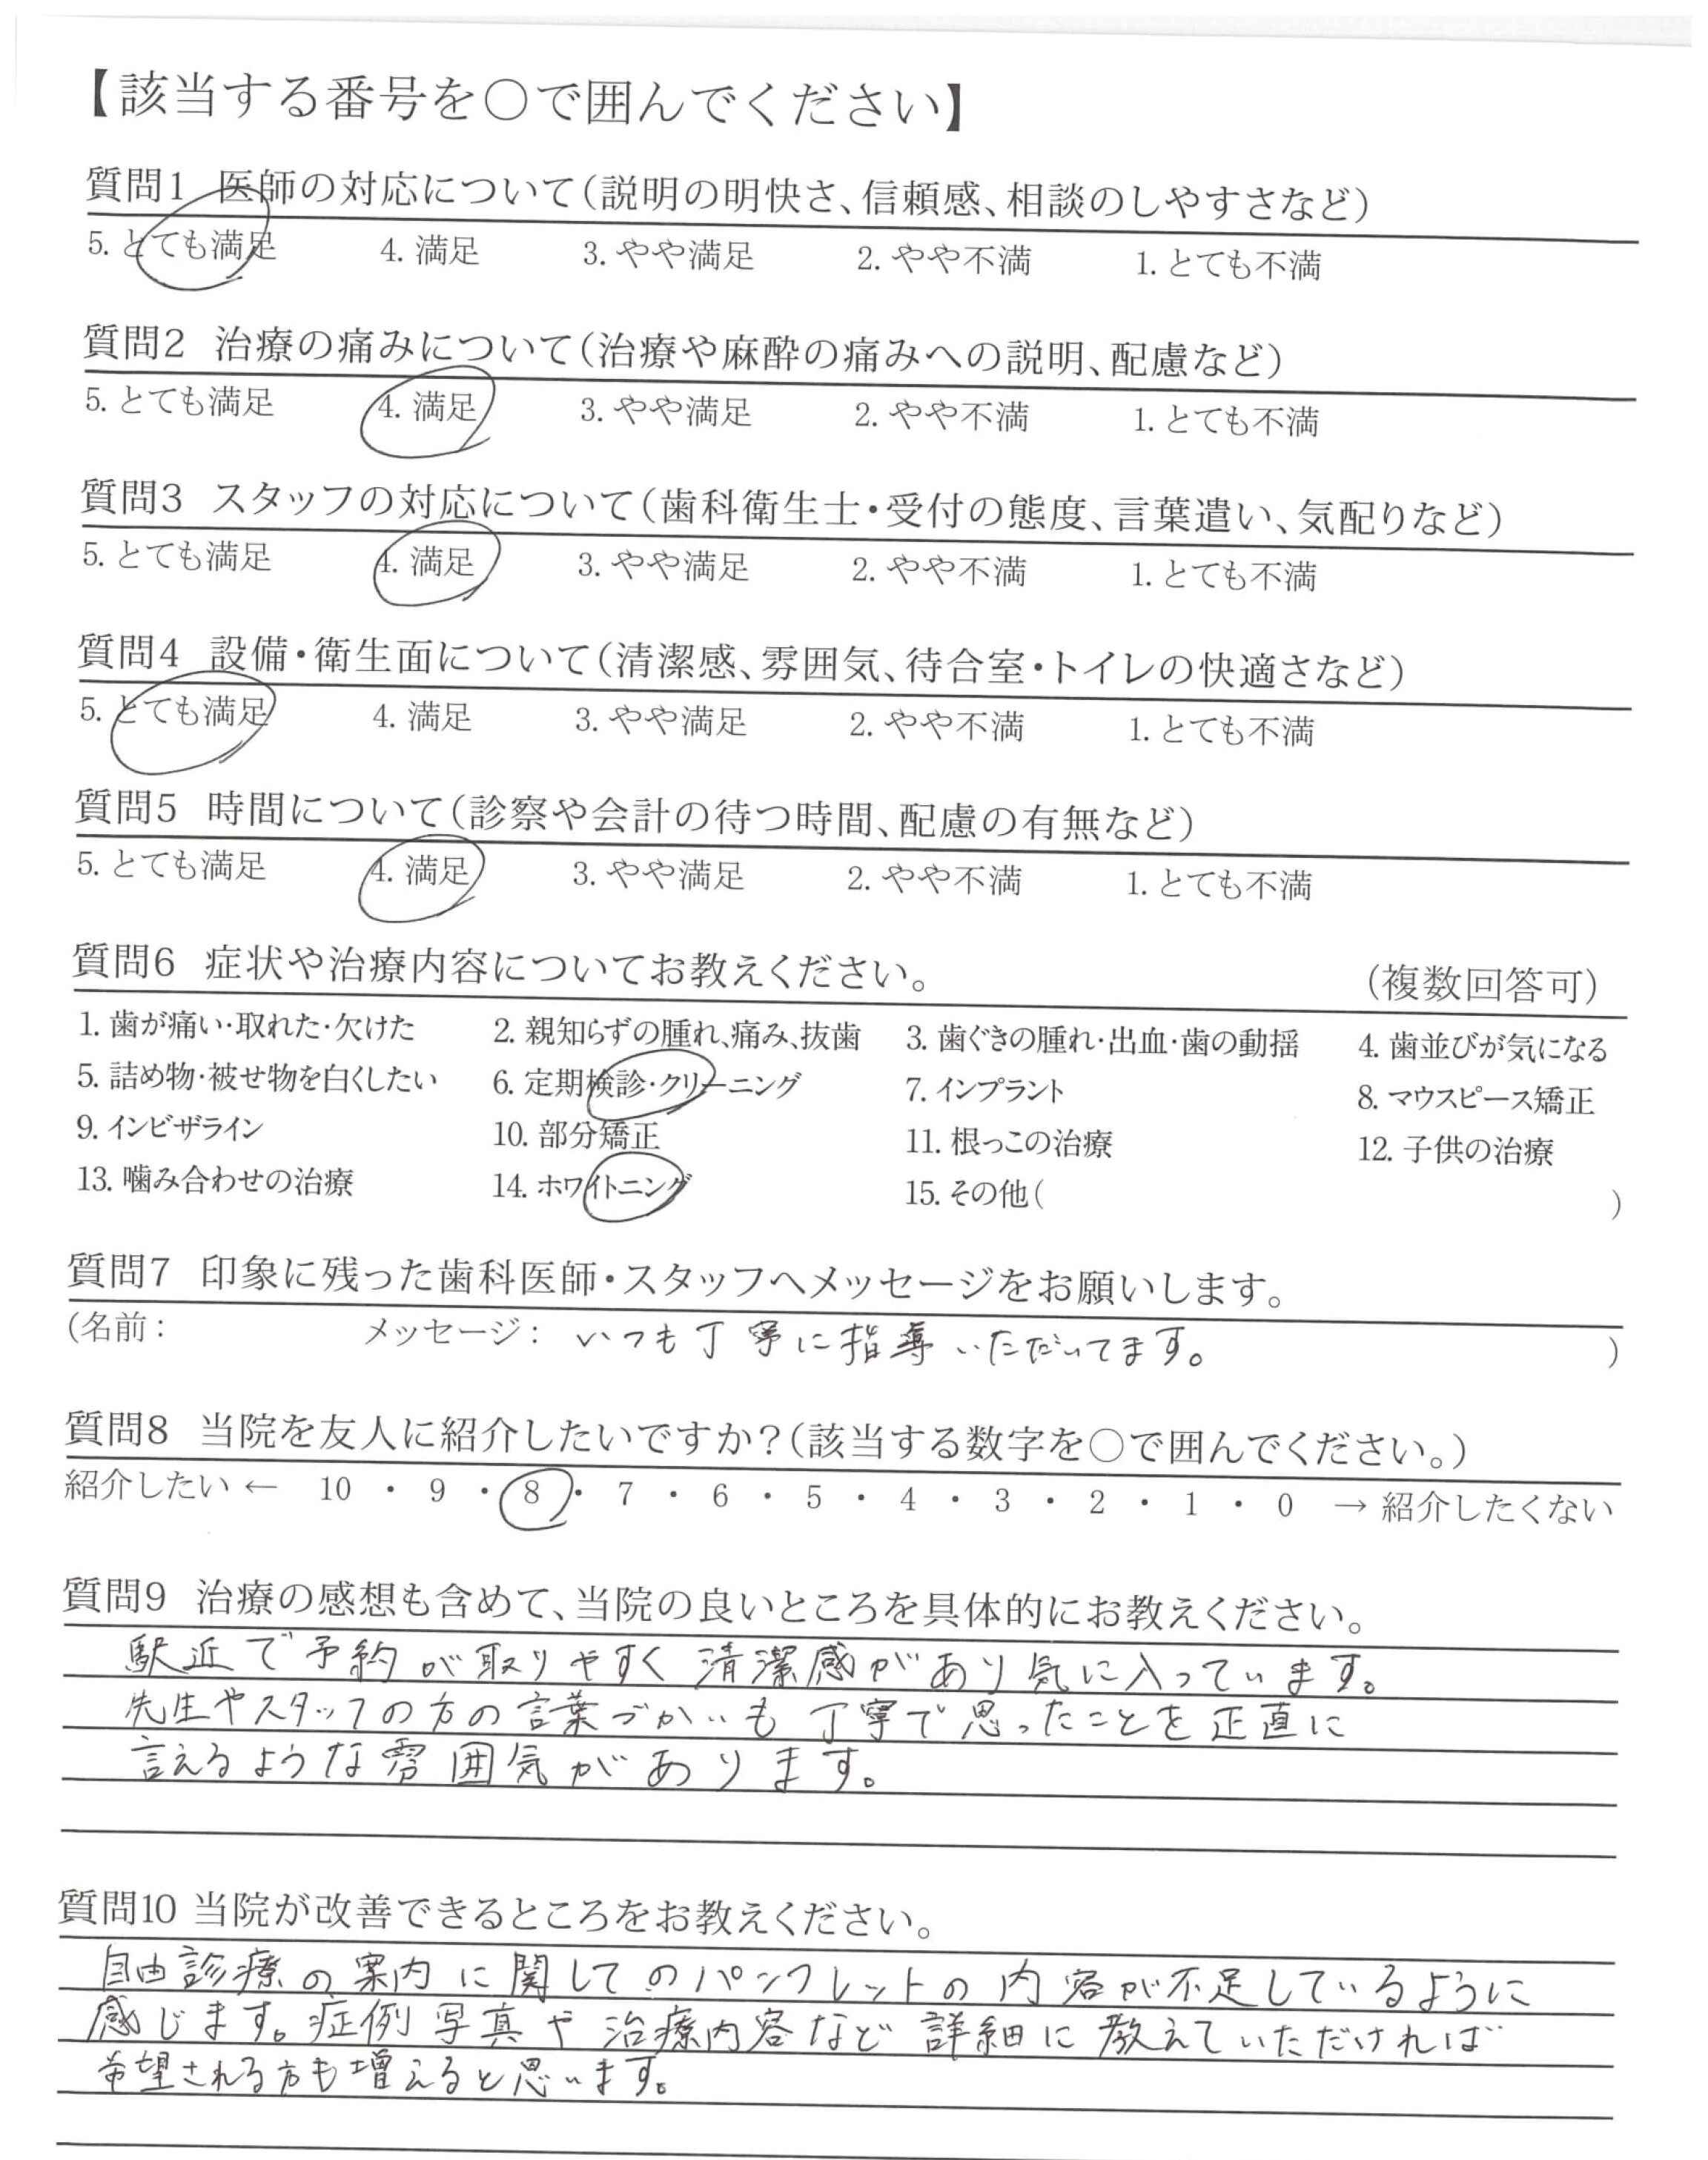 【該当する番号を○で囲んでください】
質問1 医師の対応について(説明の明快さ、信頼感、相談のしやすさなど)
5. とても満足 4. 満足 3. やや満足 2. やや不満 1. とても不満
質問2 治療の痛みについて(治療や麻酔の痛みへの説明、配慮など)
5. とても満足 4. 満足 3. やや満足 2. やや不満 1. とても不満
質問3 スタッフの対応について(歯科衛生士・受付の態度、言葉遣い、気配りなど)
5. とても満足 4. 満足 3. やや満足 2. やや不満 1. とても不満
質問4 設備・衛生面について(清潔感、雰囲気、待合室・トイレの快適さなど)
5. とても満足 4. 満足 3. やや満足 2. やや不満 1. とても不満
質問5 時間について(診察や会計の待つ時間、配慮の有無など)
5. とても満足 4. 満足 3. やや満足 2. やや不満 1. とても不満
質問6 症状や治療内容についてお教えください。 (複数回答可)
1. 歯が痛い・取れた・欠けた 2. 親知らずの腫れ、痛み、抜歯 3. 歯ぐきの腫れ・出血・歯の動揺 4. 歯並びが気になる
5. 詰め物・被せ物を白くしたい 6. 定期検診・クリーニング 7. インプラント 8. マウスピース矯正
9. インビザライン 10. 部分矯正 11. 根っこの治療 12. 子供の治療
13. 噛み合わせの治療 14. ホワイトニング 15. その他( )
質問7 印象に残った歯科医師・スタッフへメッセージをお願いします。
(名前: メッセージ: いつも丁寧に指導いただいてます。 )
質問8 当院を友人に紹介したいですか?(該当する数字を○で囲んでください。)
紹介したい ← 10 ・ 9 ・ 8 ・ 7 ・ 6 ・ 5 ・ 4 ・ 3 ・ 2 ・ 1 ・ 0 → 紹介したくない
質問9 治療の感想も含めて、当院の良いところを具体的にお教えください。
駅近で予約が取りやすく清潔感があり気に入っています。
先生やスタッフの方の言葉づかいも丁寧で思ったことを正直に
言えるような雰囲気があります。
質問10 当院が改善できるところをお教えください。
自由診療の案内に関してのパンフレットの内容が不足しているように
感じます。症例写真や治療内容など詳細に教えていただければ
希望される方も増えると思います。